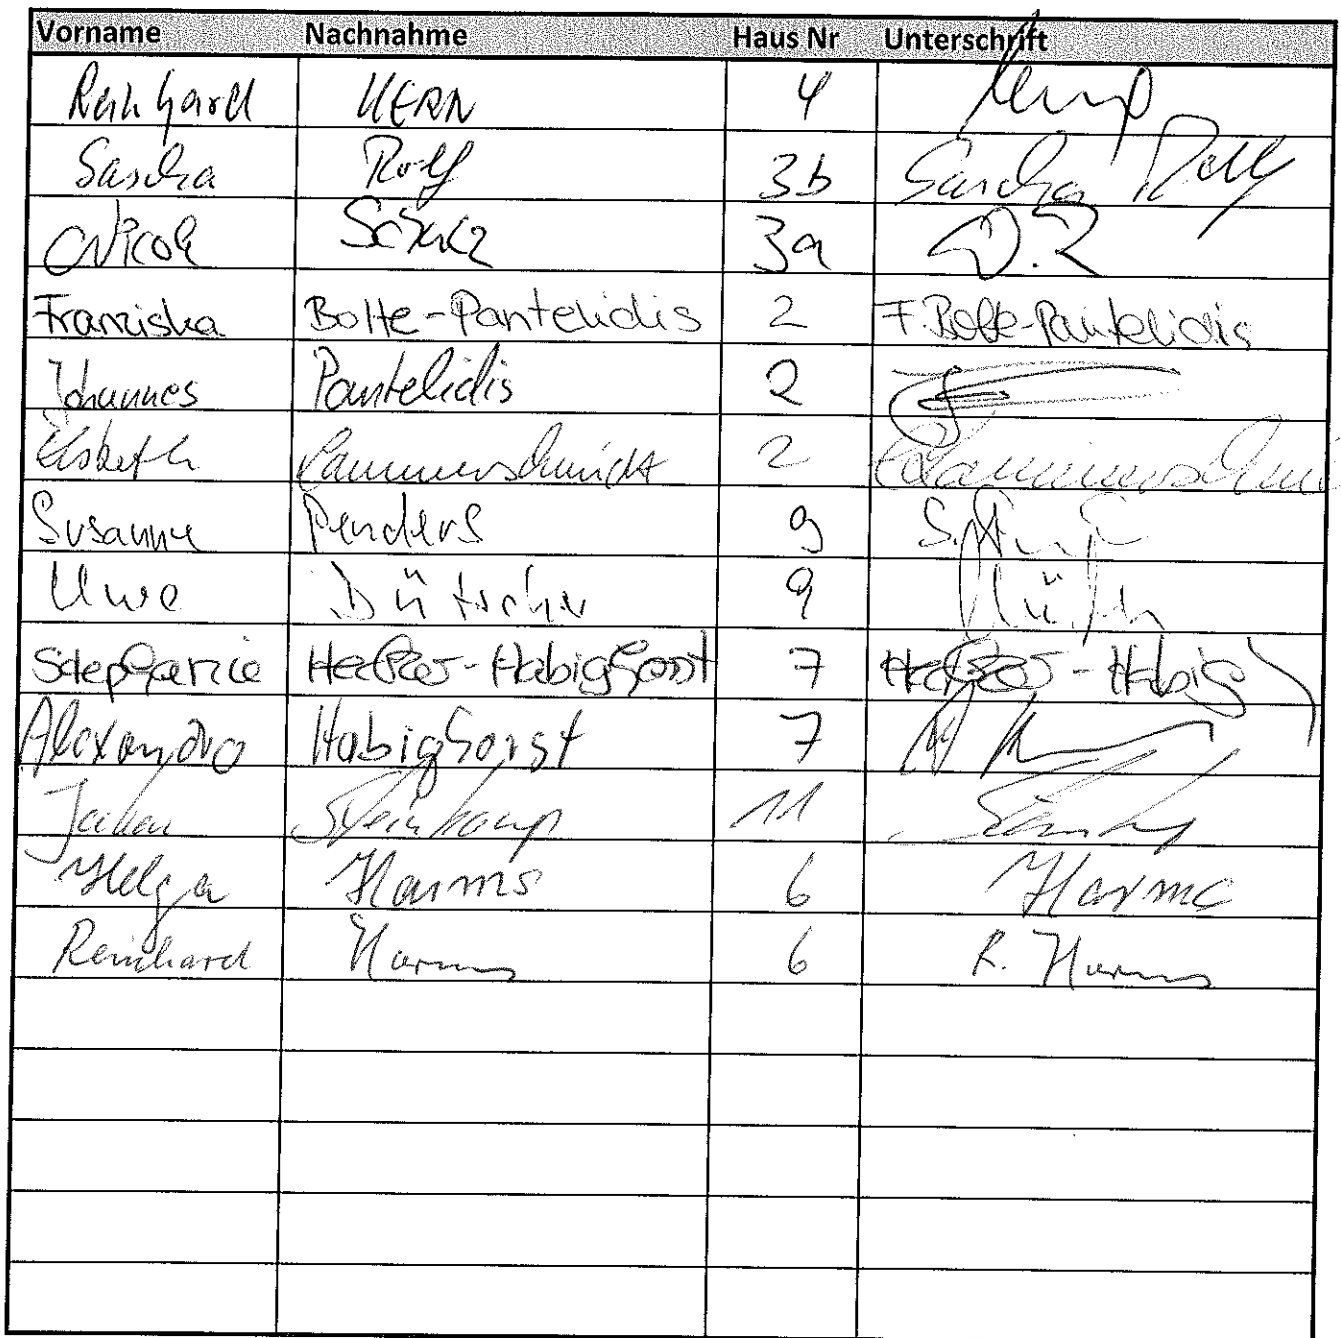 Vorname Nachnahme Haus Nr Unterschrift
Reinhard KERN 4
Sascha Rolf 3b Sascha Rolf
Nicole Schulz 3a
Franziska Bolte-Pantelidis 2 F. Bolte-Pantelidis
Johannes Pantelidis 2
Elsbeth Lammerschmidt 2
Susanne Penders 9
Uwe 9
Stephanie Habighorst 7
Habighorst 7
Steinkamp 11
Helga Harms 6 Harms
Reinhard Harms 6 R. Harms